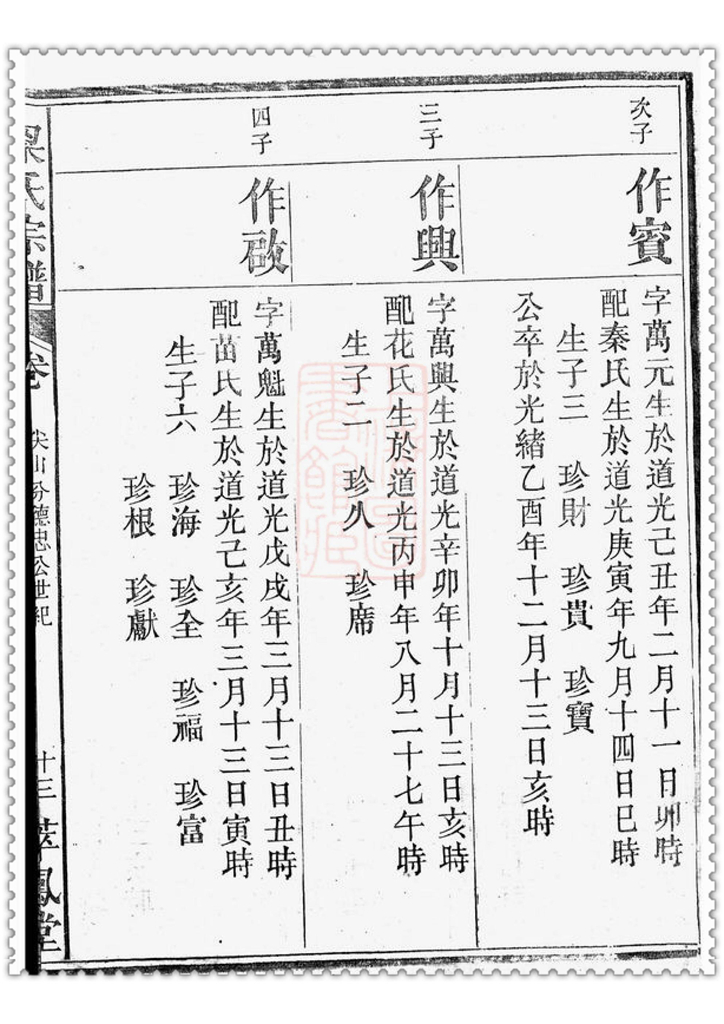 次子
作賓
字萬元生於道光己丑年二月十一日卯時
配秦氏生於道光庚寅年九月十四日巳時
生子三 珍財 珍貴 珍寶
公卒於光緒乙酉年十二月十三日亥時
三子
作興
字萬興生於道光辛卯年十月十三日亥時
配花氏生於道光丙申年八月二十七午時
生子二 珍久 珍席
四子
作啟
字萬魁生於道光戊戌年三月十三日丑時
配苗氏生於道光己亥年三月十三日寅時
生子六 珍海 珍全 珍福 珍富
珍根 珍獻
氏宗譜
卷
尖山分德忠公世紀
十三
鳳堂